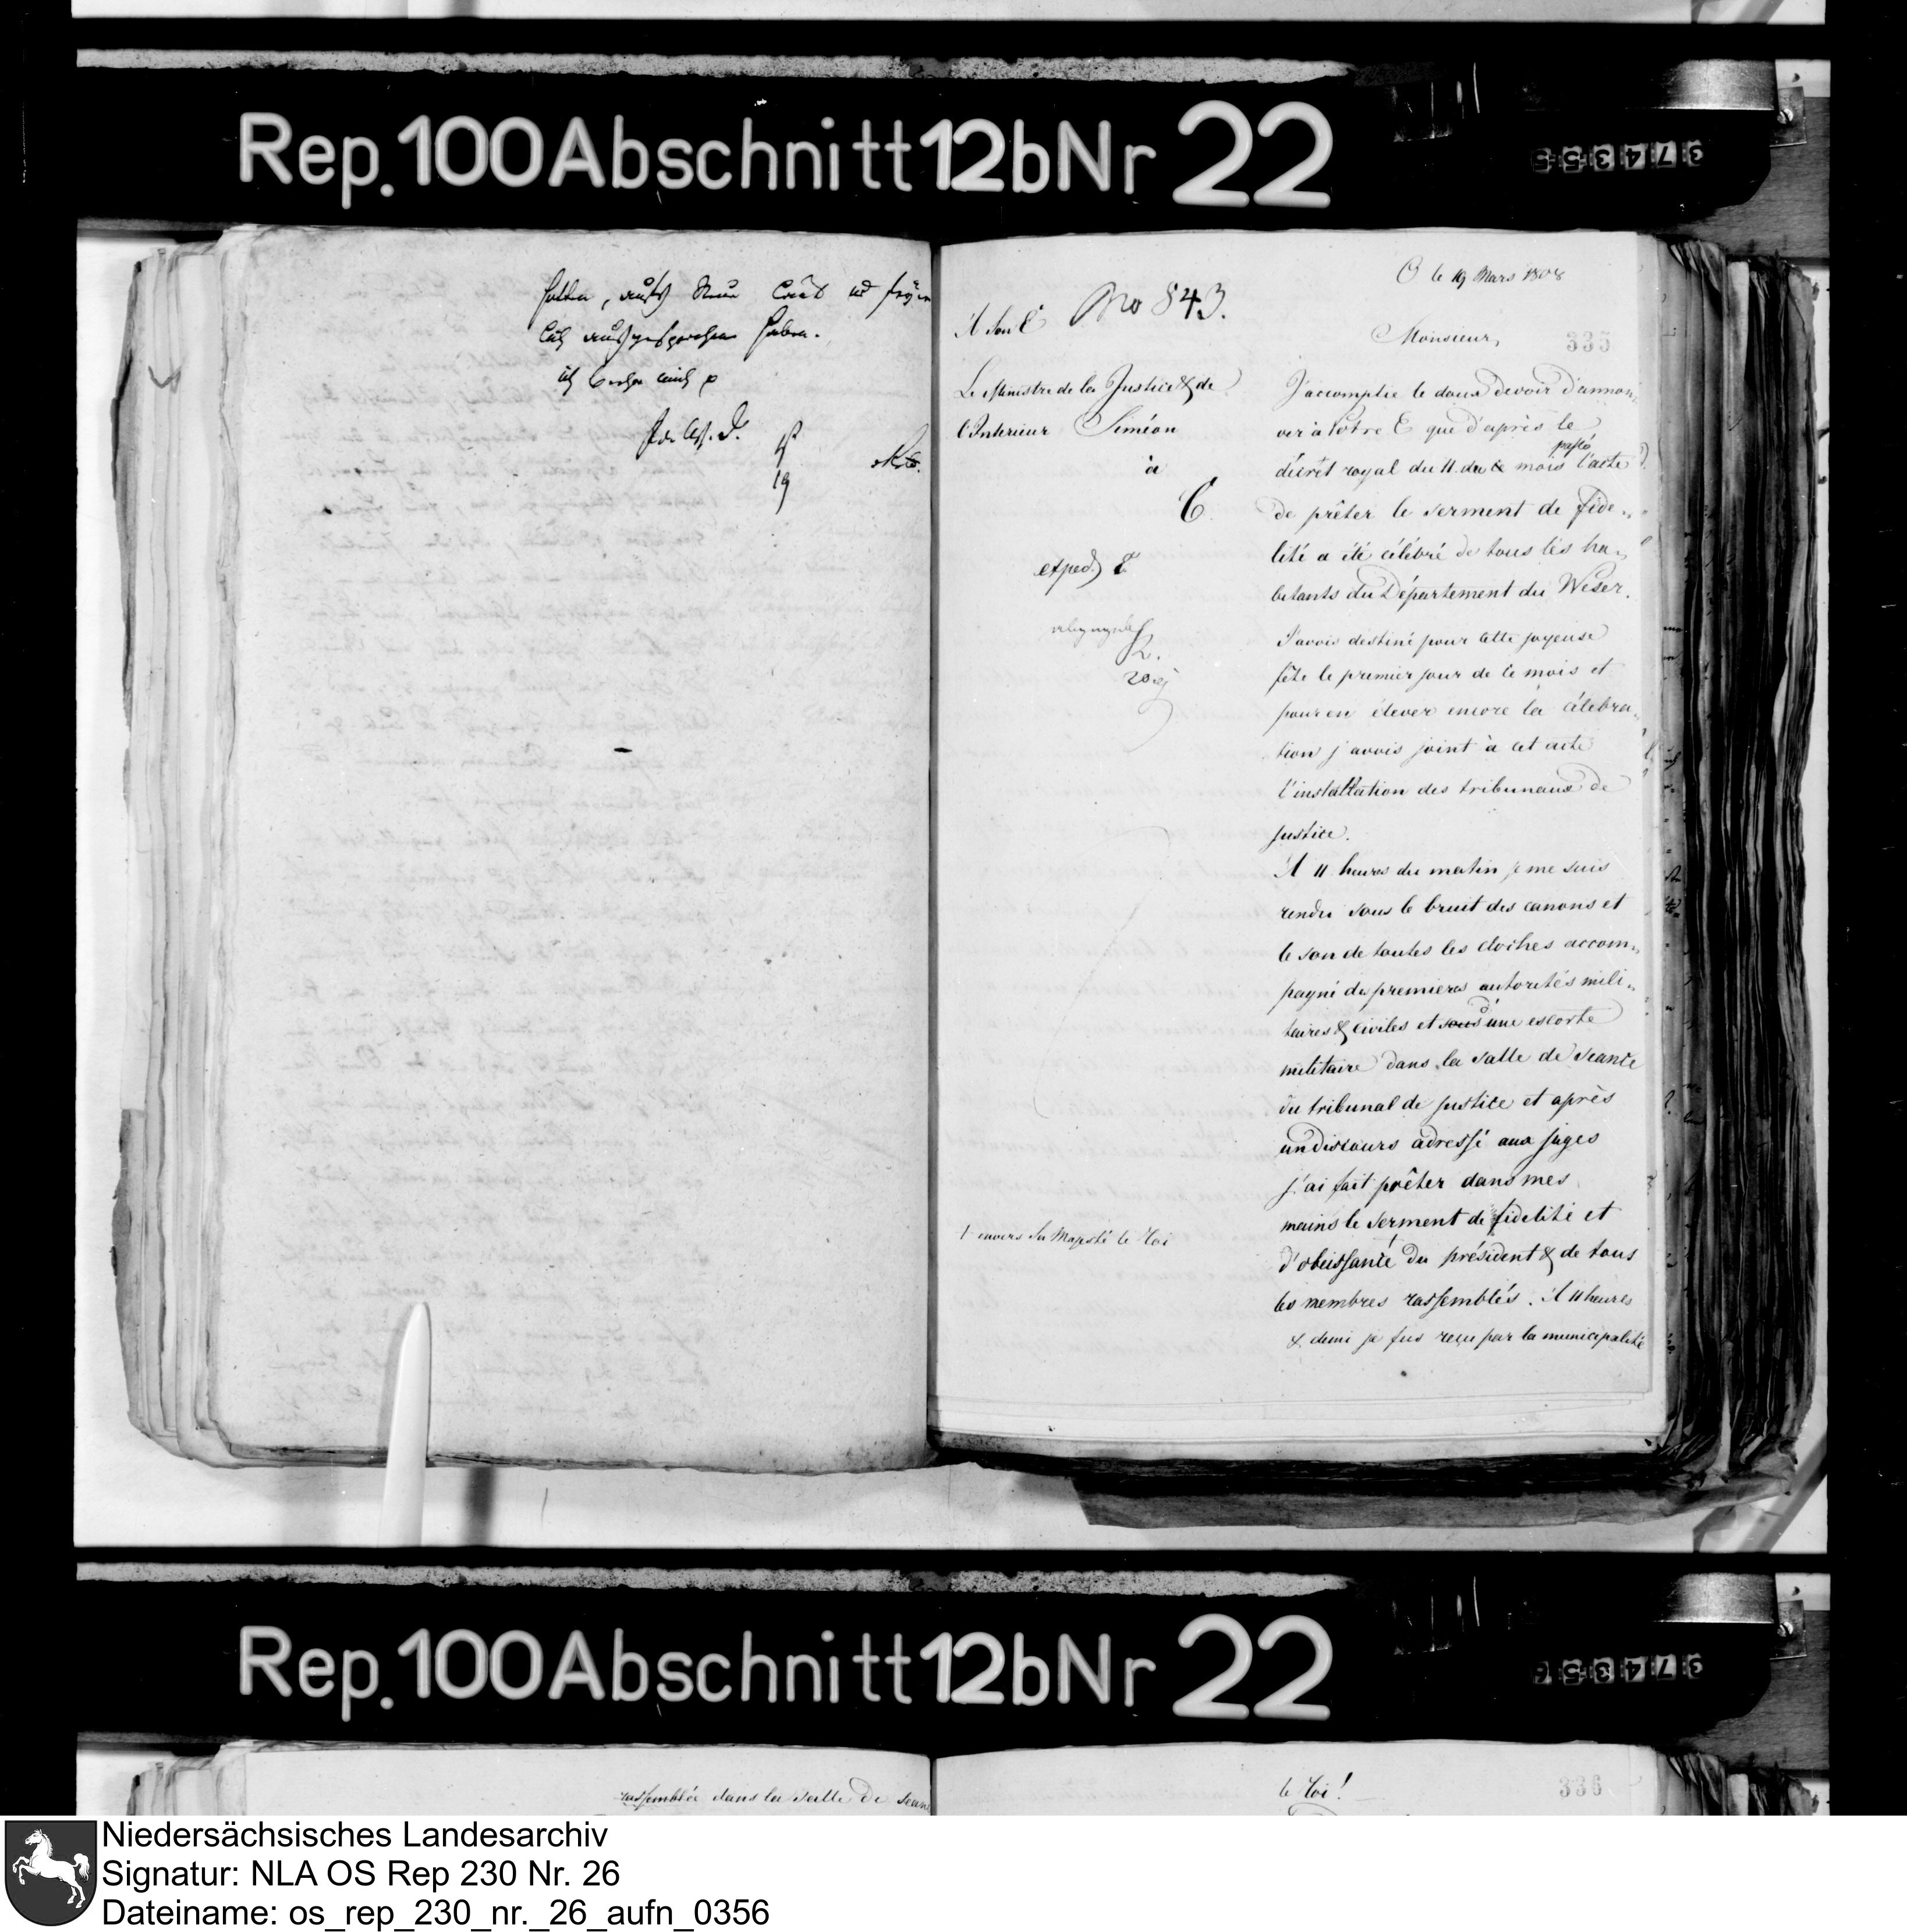 Rep. 100 Abschnitt 12b Nr 22
37435-5
haben.
19
No 843.
A Son E
Le Ministre de la Justice & de
l'Interieur Siméon
à
C.
exped.
20
† envers Sa Majesté le Roi
O le 19 Mars 1808
335
Monsieur,
J'accomplie le doux devoir d'annon„
cer à Votre E que d'après le
passé
décrèt royal du 11. du ce mois l'acte
de prêter le serment de fide„
lité a été célébré de tous les ha„
bitants du Département du Weser.
J'avois destiné pour cette joyeuse
fête le premier jour de ce mois et
pour en élever encore la célébra„
tion j'avois joint à cet acte
l'installation des tribunaux de
justice.
A 11 heures du matin je me suis
rendu sous le bruit des canons et
le son de toutes les cloches accom„
pagné des premieres autorités mili„
taires & civiles et sous d'une escorte
militaire dans la salle de seance
du tribunal de justice et après
un discours adressé aux juges
j'ai fait prêter dans mes
mains le serment de fidelité et
d'obeissance † du président & de tous
les membres rassemblés. A 11 heures
& demi je fus reçu par la municipalité
Rep. 100 Abschnitt 12b Nr 22
37435-6
rassemblée dans la salle de sean
le Roi!
336
Niedersächsisches Landesarchiv
Signatur: NLA OS Rep 230 Nr. 26
Dateiname: os_rep_230_nr._26_aufn_0356